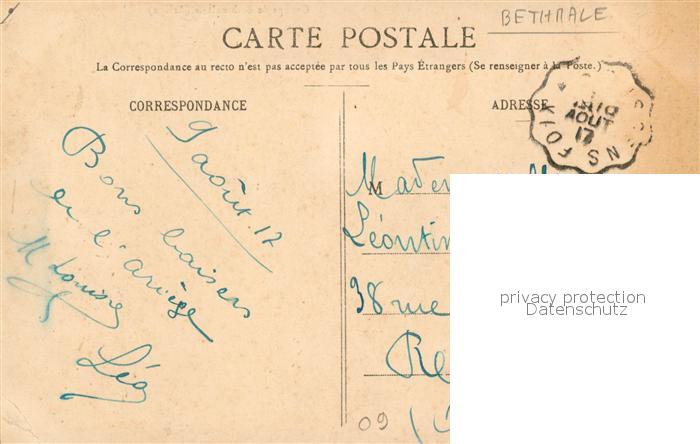 BETHMALE
CARTE POSTALE
La Correspondance au recto n'est pas acceptée par tous les Pays Étrangers (Se renseigner à la Poste.)
CORRESPONDANCE
ADRESSE
AOUT
17
9 août 17
Bons baisers
de l'Ariège
M Louise
Léo
M
Léontin
38 rue
Re
09
privacy protection
Datenschutz